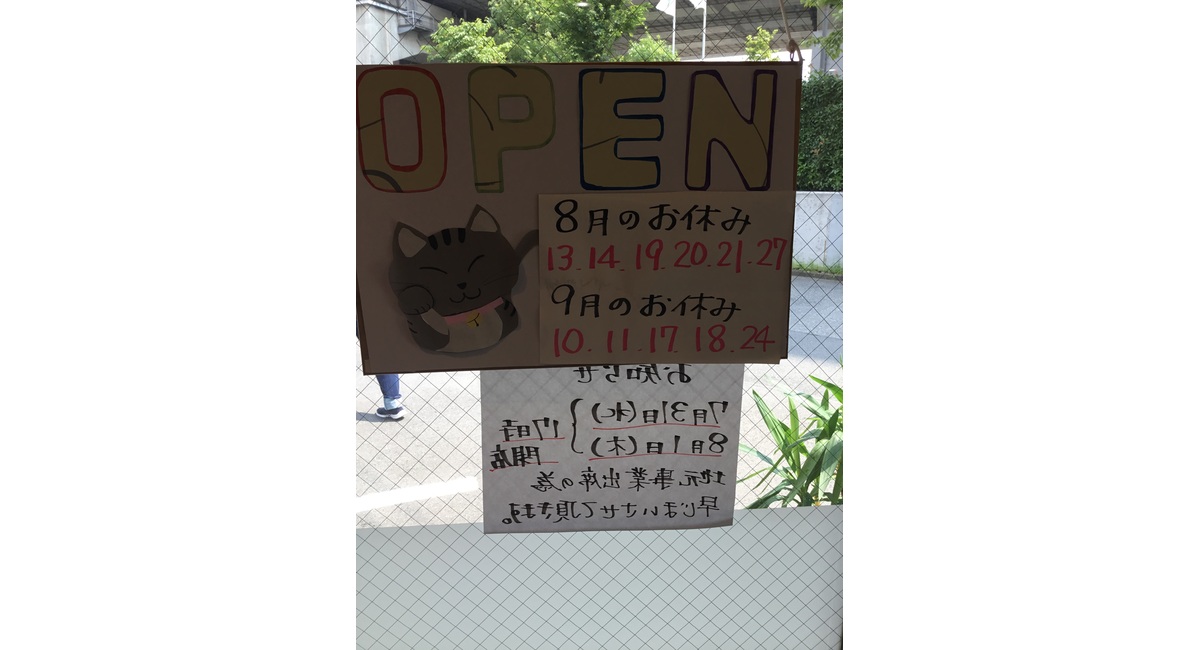 OPEN
8月のお休み
13.14.19.20.21.27
9月のお休み
10.11.17.18.24
お知らせ
7月31日(水)
8月1日(木)
17時
閉店
地元事業出席の為
早じまいさせて頂きます。